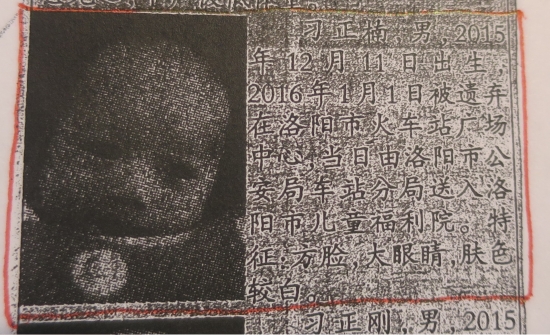 刁正楠,男,2015
年12月11日出生,
2016年1月1日被遗弃
在洛阳市火车站广场
中心,当日由洛阳市公
安局车站分局送入洛
阳市儿童福利院。特
征:方脸,大眼睛,肤色
较白。
刁正刚,男,2015